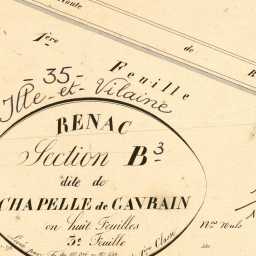 Route
1ère
de
Feuille
- 35 -
Ille-et-Vilaine
RENAC
Section B3
dite de
CHAPELLE de GAVRAIN
en huit Feuilles
3e Feuille